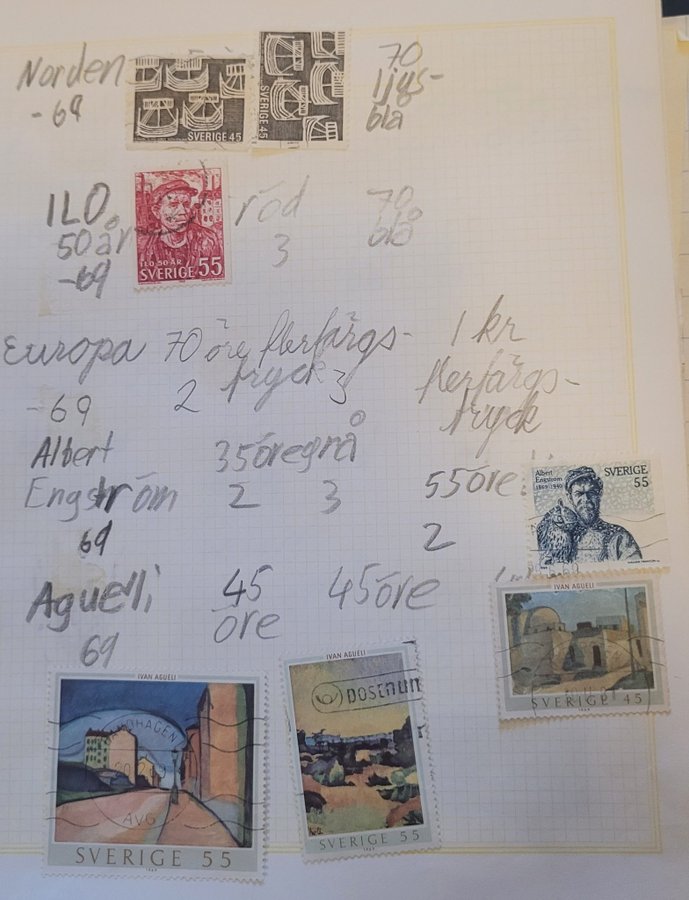 Norden
-69
SVERIGE 45
SVERIGE 45
70
ljus-
blå
ILO
50 år
-69
ILO 50 ÅR
SVERIGE 55
röd
3
70
blå
Europa
-69
70 öre flerfärgs-
tryck
2 3
1 kr
flerfärgs-
tryck
Albert
Engström
69
35 öre grå
2 3
55 öre
2
Albert
Engström
1869-1940
SVERIGE
55
Aguelli
69
45
öre
45 öre
IVAN AGUÉLI
SVERIGE 45
IVAN AGUÉLI
KØBENHAVN
AVG
SVERIGE 55
1969
IVAN AGUÉLI
postnum
SVERIGE 55
1969